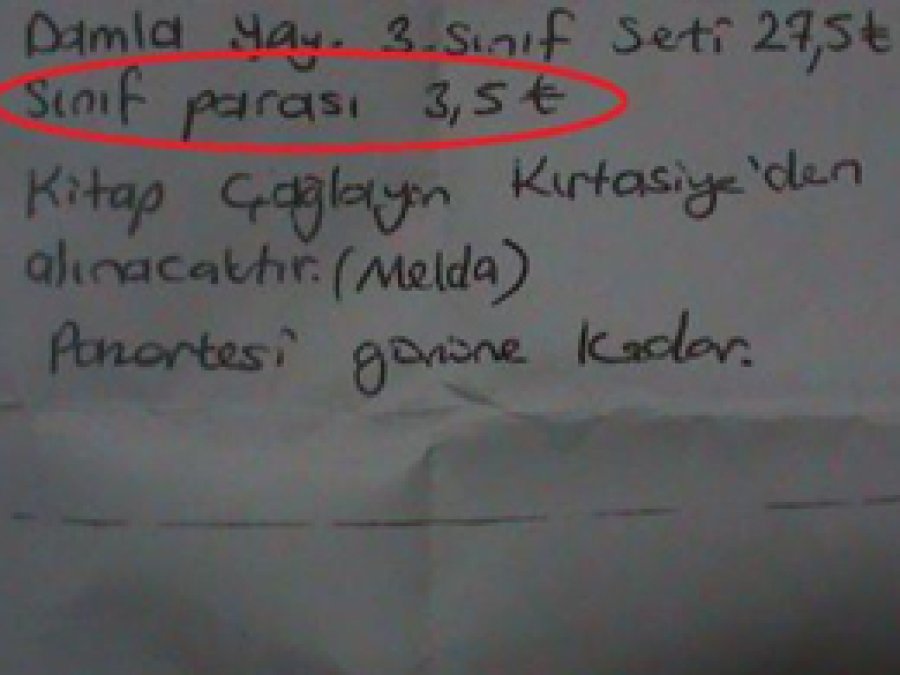 Damla Yay. 3. Sınıf Seti 27,5 ₺
Sınıf parası 3,5 ₺
Kitap Çağlayan Kırtasiye'den
alınacaktır. (Melda)
Pazartesi gününe Kadar.